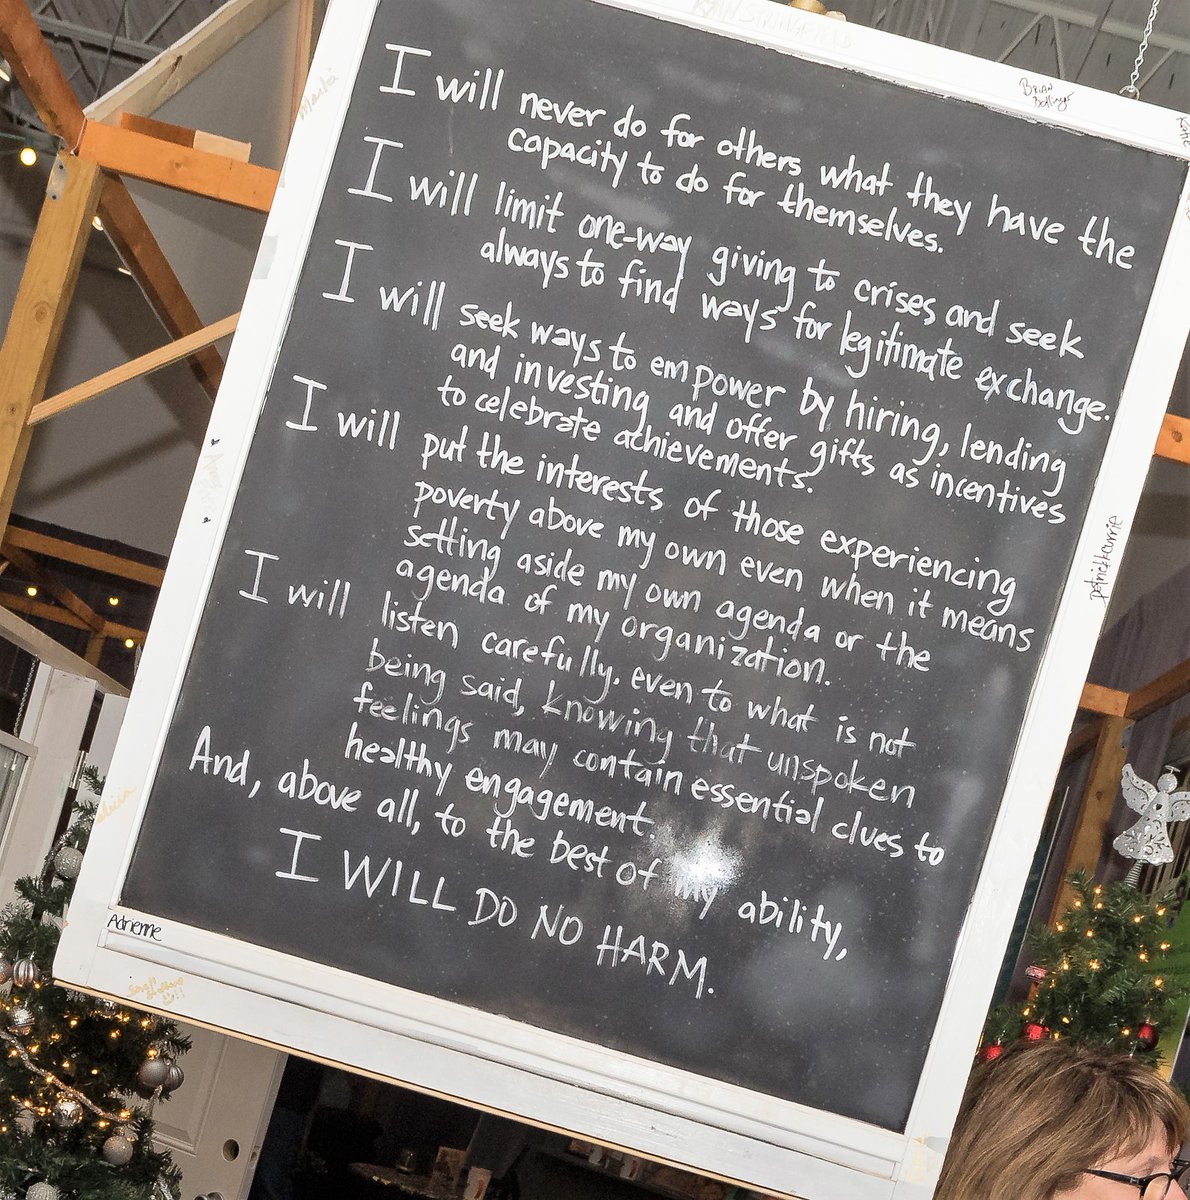 RYAN STRINGFIELD
Brian
I will never do for others what they have the
capacity to do for themselves.
I will limit one-way giving to crises and seek
always to find ways for legitimate exchange.
I will seek ways to empower by hiring, lending
and investing and offer gifts as incentives
to celebrate achievements.
I will put the interests of those experiencing
poverty above my own even when it means
setting aside my own agenda or the
agenda of my organization.
I will listen carefully, even to what is not
being said, knowing that unspoken
feelings may contain essential clues to
healthy engagement.
And, above all, to the best of my ability,
I WILL DO NO HARM.
Adrienne